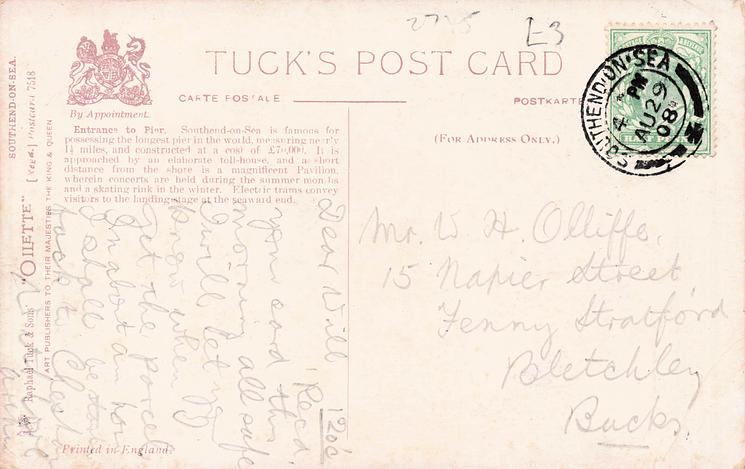 2775
L3
TUCK'S POST CARD
CARTE POSTALE
POSTKARTE
By Appointment.
(FOR ADDRESS ONLY.)
Entrance to Pier. Southend-on-Sea is famous for
possessing the longest pier in the world, measuring nearly
1¼ miles, and constructed at a cost of £70,000. It is
approached by an elaborate toll-house, and a short
distance from the shore is a magnificent Pavilion,
wherein concerts are held during the summer months
and a skating rink in the winter. Electric trams convey
visitors to the landing-stage at the seaward end.
SOUTHEND-ON-SEA
4 PM
AU 29
08
Mr. W H. Olliffe,
15 Napier Street
Fenny Stratford
Bletchley
Bucks.
Dear Will Rec'd
your card this
morning all safe
I will let you
know when I
get the parcel
in about an hour
I shall be
back to
SOUTHEND-ON-SEA.
"OILETTE" [Regd.] Postcard 7518
Raphael Tuck & Sons
ART PUBLISHERS TO THEIR MAJESTIES THE KING & QUEEN
Printed in England.